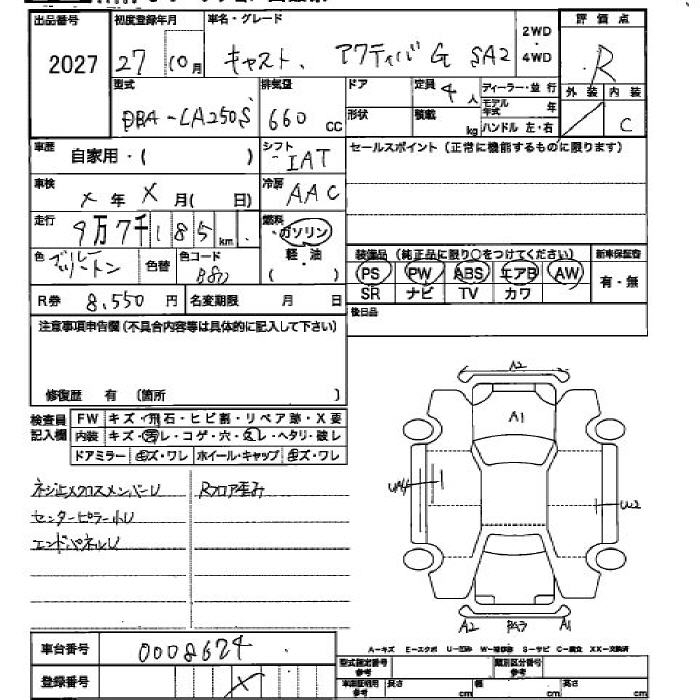 出品番号 初度登録年月 車名・グレード 2WD・4WD 評価点
2027 27 10月 キャスト、アクティバ G SA2 R
型式 排気量 ドア 定員 4人 ディーラー・並行 外装 内装
DBA-LA250S 660 cc 形状 積載 kg モデル年式 年 ハンドル 左・右 C
車歴 自家用・( ) シフト IAT セールスポイント(正常に機能するものに限ります)
車検 X年 X月( 日) 冷房 AAC
走行 9万7千185km 燃料 ガソリン・軽・油( )
色 ツートン 色替 色コード 装備品(純正品に限り○をつけてください) 新車保証書
PS PW ABS エアB AW 有・無
SR ナビ TV カワ
R券 8,550円 名変期限 月 日 後日品
注意事項申告欄(不具合内容等は具体的に記入して下さい)
修復歴 有 (箇所 )
検査員記入欄 FW キズ・飛石・ヒビ割・リペア跡・X要
内装 キズ・汚レ・コゲ・穴・欠レ・ヘタリ・破レ
ドアミラー キズ・ワレ ホイール・キャップ キズ・ワレ
ネジ止メクロスメンバーU Rフロア歪み
センターピラー小U
エンドパネルU
A2
A1
U2
A2 A1
A-キズ E-エクボ U-凹み W-補修跡 S-サビ C-腐食 XX-交換済
車台番号 0008624 型式指定番号 参考 類別区分番号 参考
登録番号 X 車庫証明用 参考 長さ cm 幅 cm 高さ cm